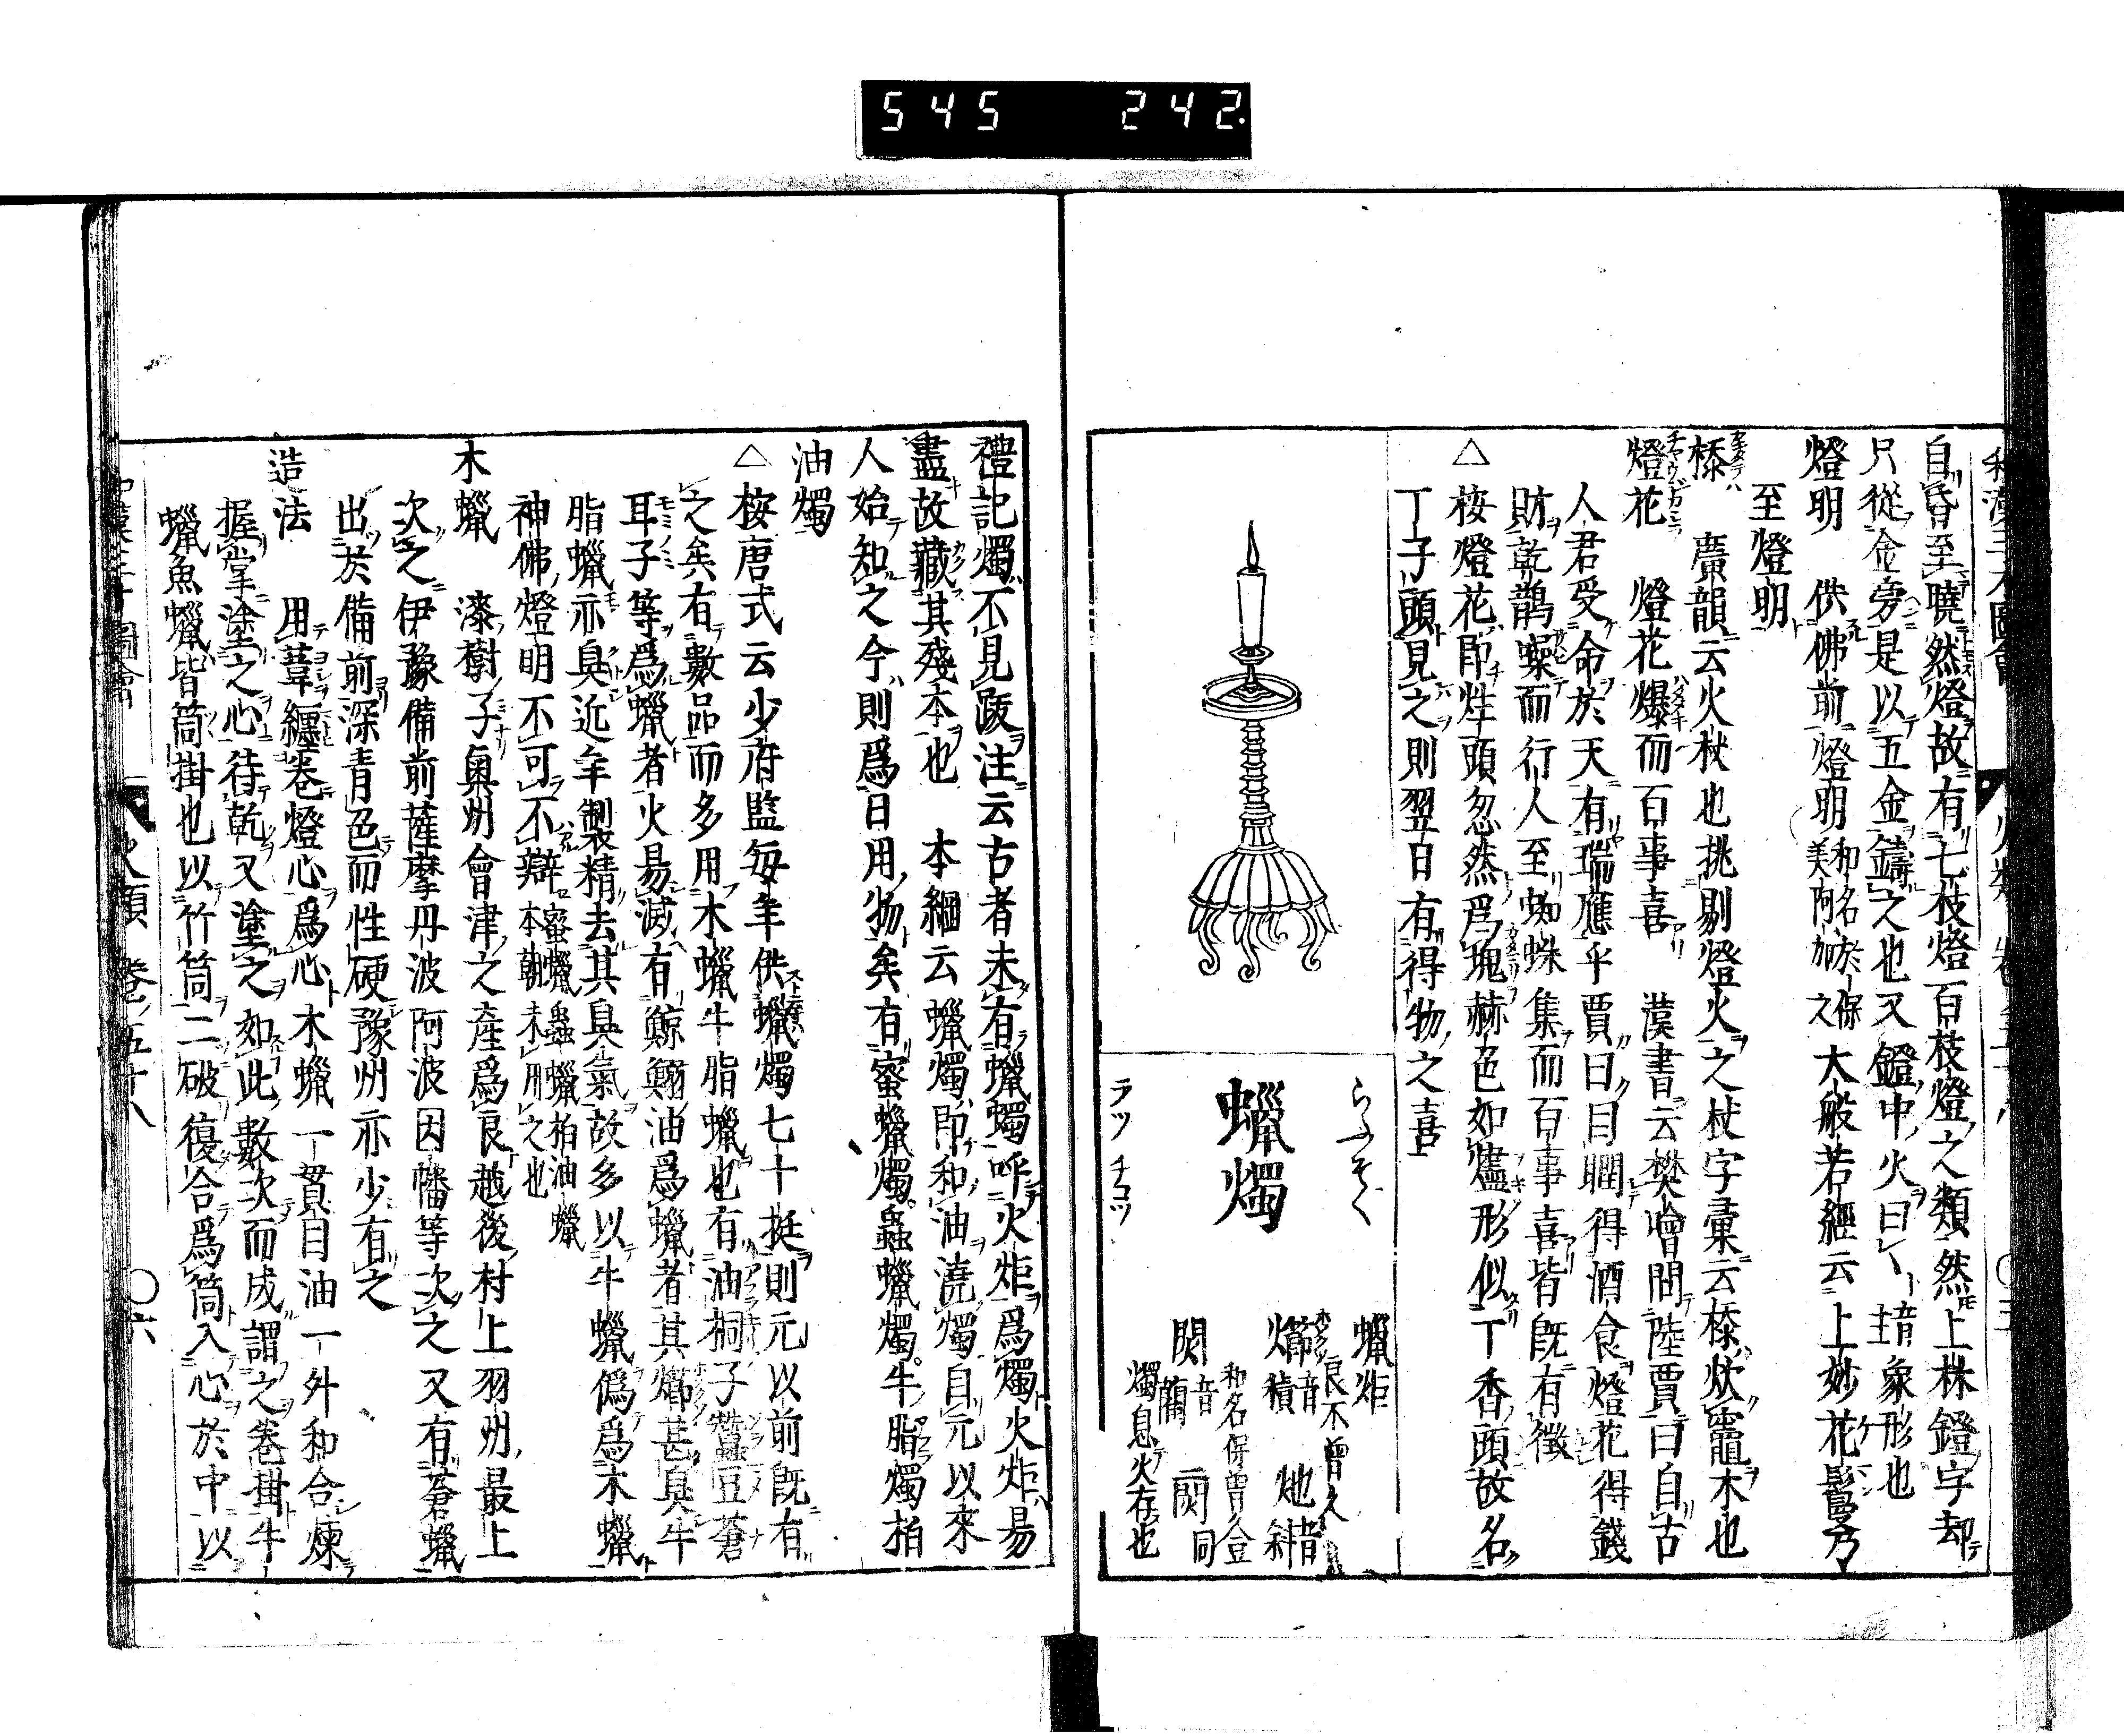 545 242.
自昏至曉然燈故有七枝燈百枝燈之類然上株鐙字却
只從金旁是以五金鑄之也又鐙中火曰丶音主象形也
燈明 供佛前燈明和名於保美阿加之大般若經云上妙花鬘乃
至燈明
㮕 廣韻云火杖也挑剔燈火之杖字彙云㮕炊竈木也
燈花 燈花爆而百事喜 漢書云樊噲問陸賈曰自古
人君受命於天有瑞應乎賈曰目瞤得酒食燈花得錢
財乾鵲噪而行人至蜘蛛集而百事喜皆既有徵
△桉燈花即炷頭忽然爲塊赫色如燼形似丁香頭故名
丁子頭見之則翌日有得物之喜
らふそく
蠟燭
ラツ チヨツ
蠟炬
㸅音積 灺音斜
和名保曽久豆
閔音藺 同
燭息火存也
禮記燭不見跋注云古者未有蠟蠋呼火炬爲燭火炬易
盡故藏其殘本也 本綱云蠟燭即和油澆燭自元以來
人始知之今則爲日用物矣有蜜蠟燭蟲蠟燭牛脂燭柏
油燭
△桉唐式云少府監毎年供蠟燭七十挺則元以前既有
之矣有數品而多用木蠟牛脂蠟也有油桐子蠶豆蒼
耳子等爲蠟者火易滅有鯨鰯油爲蠟者其㸅甚臭牛
脂蠟亦臭近年製精去其臭氣故多以牛蠟僞爲木蠟
神佛燈明不可不辯蜜蠟蟲蠟柏油蠟本朝未用之也
木蠟 漆樹子奥州會津之産爲良越後村上羽州最上
次之伊豫備前薩摩丹波阿波因幡等次之又有蒼蠟
出於備前深青色而性硬豫州亦少有之
造法 用葦纏卷燈心爲心木蠟一貫目油一外和合煉
握掌塗之心待乾又塗之如此數次而成謂之卷掛牛
蠟魚蠟皆筒掛也以竹筒二破復合爲筒入心於中以
火類 卷ノ五十八 〇六